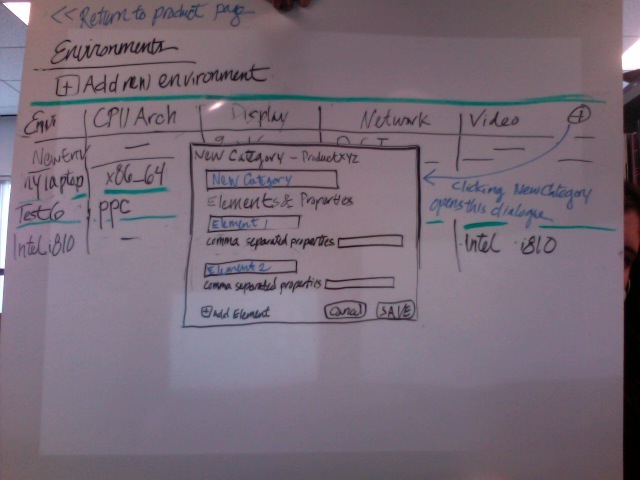 <<Return to product page
Environments
[+] Add new environment
Env CPU Arch Display Network Video +
NewEnv — — —
mylaptop x86_64
Test6 .ppc
Intel i810 — Intel · i810
New Category - ProductXYZ
New Category
Elements & Properties
Element 1
comma separated properties
Element 2
comma separated properties
+ Add Element Cancel SAVE
Clicking New Category
opens this dialogue